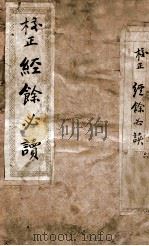 校正
經餘必讀
校正
經餘必讀